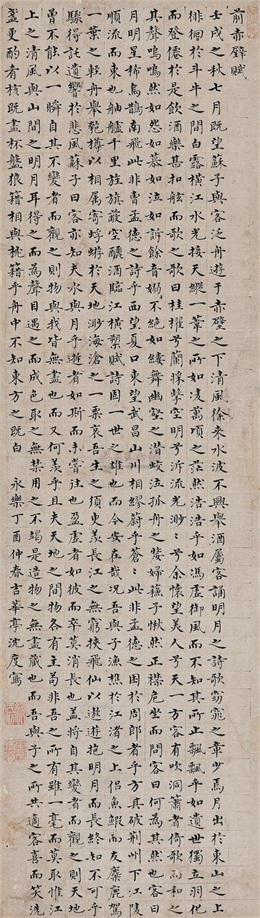 前赤壁賦
壬戌之秋七月既望蘇子與客泛舟遊于赤壁之下清風徐來水波不興舉酒屬客誦明月之詩歌窈窕之章少焉月出於東山之上
徘徊於斗牛之間白露橫江水光接天縱一葦之所如凌萬頃之茫然浩浩乎如馮虛御風而不知其所止飄飄乎如遺世獨立羽化
而登僊於是飲酒樂甚扣舷而歌之歌曰桂櫂兮蘭槳擊空明兮泝流光渺渺兮余懷望美人兮天一方客有吹洞簫者倚歌而和之
其聲嗚嗚然如怨如慕如泣如訴餘音嫋嫋不絕如縷舞幽壑之潛蛟泣孤舟之嫠婦蘇子愀然正襟危坐而問客曰何為其然也客曰
月明星稀烏鵲南飛此非曹孟德之詩乎西望夏口東望武昌山川相繆鬱乎蒼蒼此非孟德之困於周郎者乎方其破荊州下江陵
順流而東也舳艫千里旌旗蔽空釃酒臨江橫槊賦詩固一世之雄也而今安在哉況吾與子漁樵於江渚之上侶魚鰕而友麋鹿駕
一葉之輕舟舉匏樽以相屬寄蜉蝣於天地渺海滄之一粟哀吾生之須臾羨長江之無窮挾飛仙以遨遊抱明月而長終知不可乎
驟得託遺響於悲風蘇子曰客亦知夫水與月乎逝者如斯而未嘗往也盈虛者如彼而卒莫消長也蓋將自其變者而觀之則天地
曾不能以一瞬自其不變者而觀之則物與我皆無盡也而又何羨乎且夫天地之間物各有主苟非吾之所有雖一毫而莫取惟江
上之清風與山間之明月耳得之而為聲目遇之而成色取之無禁用之不竭是造物之無盡藏也而吾與子之所共適客喜而笑洗
盞更酌肴核既盡杯盤狼籍相與枕籍乎舟中不知東方之既白 永樂丁酉仲春吉華亭沈度寫